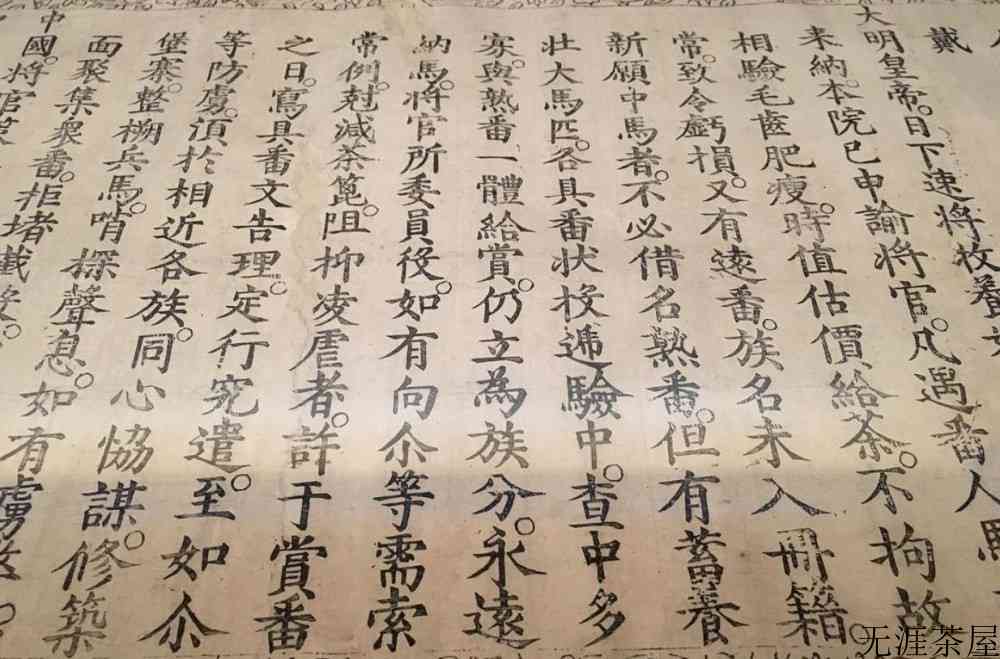 戴
大明皇帝。日下速將牧養
来納。本院已申諭將官。凡遇番人
相驗毛齒肥瘦。時值估價給茶。不拘故
常。致令虧損。又有遠番。族名未入冊籍。
新願中馬者。不必借名熟番。但有蓄養
壯大馬匹。各具番狀投遞驗中。查中多
寡與熟番一體給賞。仍立為族分。永遠
納馬。將官所委員役。如有向尒等需索
常例。尅減茶篦。阻抑凌虐者。許于賞番
之日。寫具番文告理。定行究遣。至如尒
等防虜。湏於相近各族。同心恊謀。修築
堡寨。整搠兵馬。哨探聲息。如有虜
面聚集衆番。拒堵截殺。
中國。將官
无涯茶屋